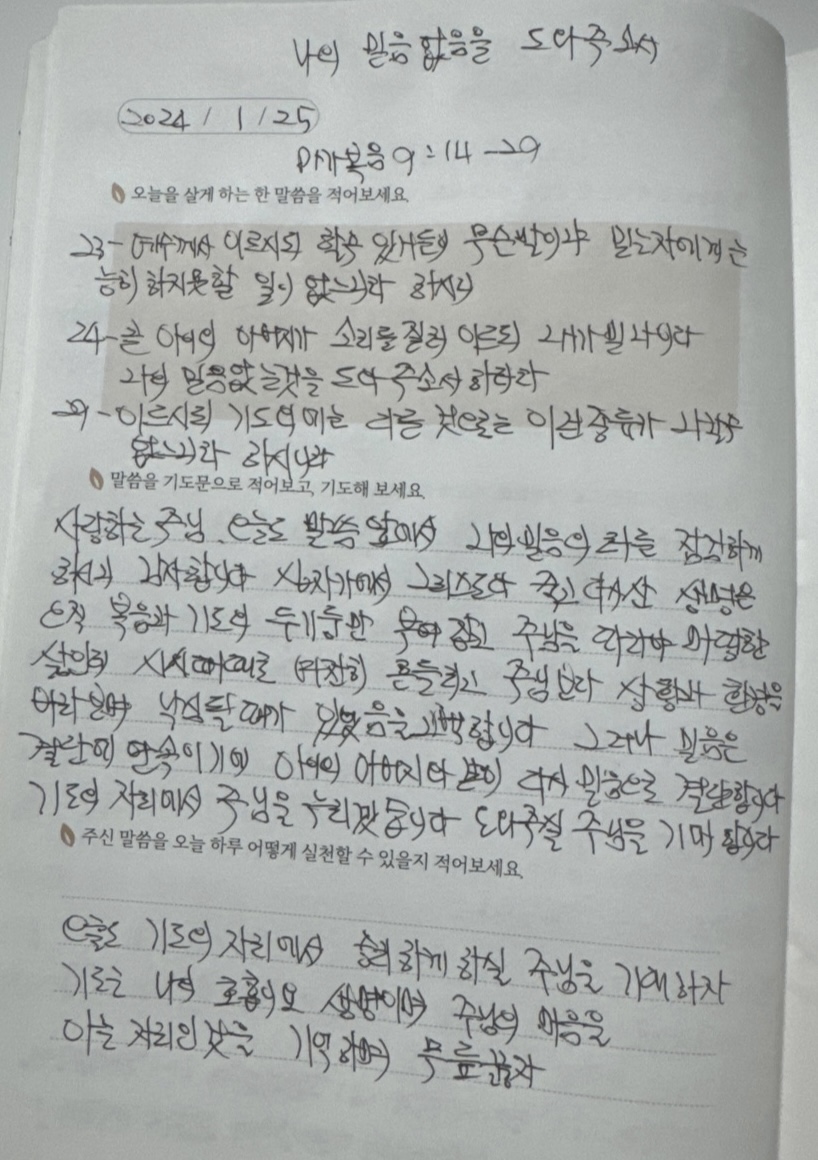 나의 믿음없음을 도와주소서
2024 / 1 / 25
마가복음 9:14-29
오늘을 살게 하는 한 말씀을 적어보세요.
23- 예수께서 이르시되 할수 있거든이 무슨말이냐 믿는자에게는
능히 하지못할 일이 없느니라 하시니
24- 곧 아이의 아버지가 소리를 질러 이르되 내가 믿나이다
나의 믿음없는것을 도와 주소서 하더라
29- 이르시되 기도외에는 다른 것으로는 이런 종류가 나갈수
없느니라 하시니라
말씀을 기도문으로 적어보고, 기도해 보세요.
사랑하는 주님 오늘도 말씀 앞에서 나의 믿음의 점검하게
하시니 감사합니다 십자가에서 그리스도와 죽고 다시산 생명은
오직 복음과 기도의 두기둥만 붙여 잡고 주님을 따라야 마땅한
삶인데 시시때때로 여전히 흔들리고 주님보다 상황과 환경을
바라보며 낙심될때가 있었음을 고백합니다 그러나 믿음은
결단에 연속이기에 아이의 아버지와 같이 다시 믿음으로 결단합니다
기도의 자리에서 주님을 누리겠습니다 도와주실 주님을 기대합니다
주신 말씀을 오늘 하루 어떻게 실천할 수 있을지 적어보세요.
오늘도 기도의 자리에서 승리하게 하실 주님을 기대하자
기도는 나의 호흡이요 생명이며 주님의 마음을
아는 자리인것을 기억하며 무릎꿇자